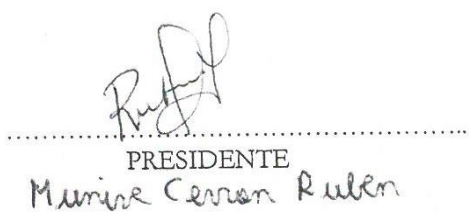 PRESIDENTE
Munive Cerron Ruben